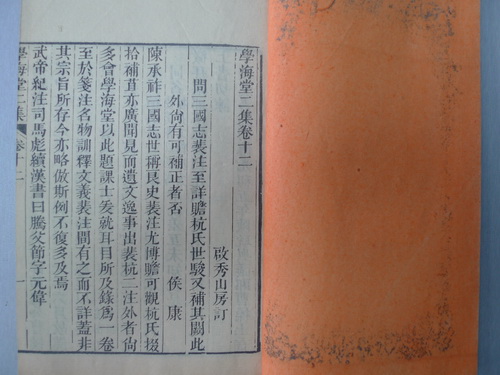 學海堂二集卷十二
啟秀山房訂
問三國志裴注至詳贍杭氏世駿又補其闕此
外尙有可補正者否
侯康
陳承祚三國志世稱良史裴注尤博贍可觀杭氏掇
拾補苴亦廣聞見而遺文逸事出裴杭二注外者尙
多會學海堂以此題課士爰就耳目所及錄爲一卷
至於箋注名物訓釋文義裴注間有之而不詳蓋非
其宗旨所存今亦略倣斯例不復多及焉
武帝紀注司馬彪續漢書曰騰父節字元偉
學海堂二集
卷十二
一